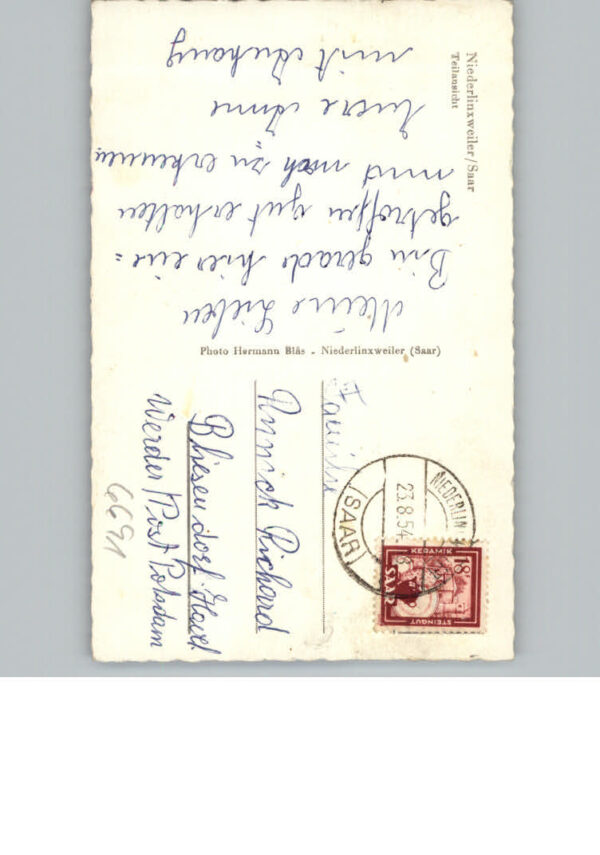 Niederlinxweiler/Saar
Teilansicht
Meine Lieben
Bin gerade hier ein=
getroffen gut erhalten
und noch zu erkennen
Euere Anne
mit Anhang
Photo Hermann Bläs - Niederlinxweiler (Saar)
NIEDERLIN
23.8.54
(SAAR)
18F
KERAMIK
SAAR
STEINGUT
Familie
Richard
Bliesendorf. Havel
Werder/Post Potsdam